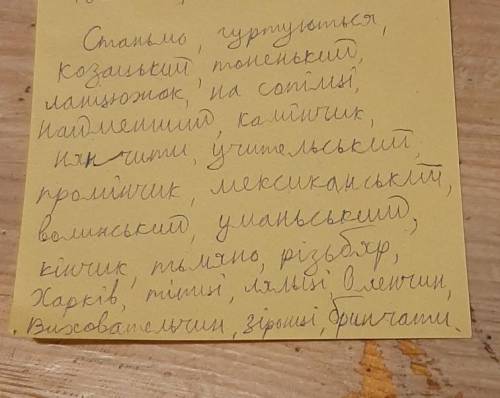 Станьмо, гуртуються,
козацький, тоненький,
ланцюжок, на сопілці,
найменший, камінчик,
нянчити, учительський,
промінчик, мексиканський,
волинський, уманьський,
кінчик, тьмяно, різьбяр,
Харків, тітці, ляльці, Оленчин,
Виховательчин, зірочці, бринчати.